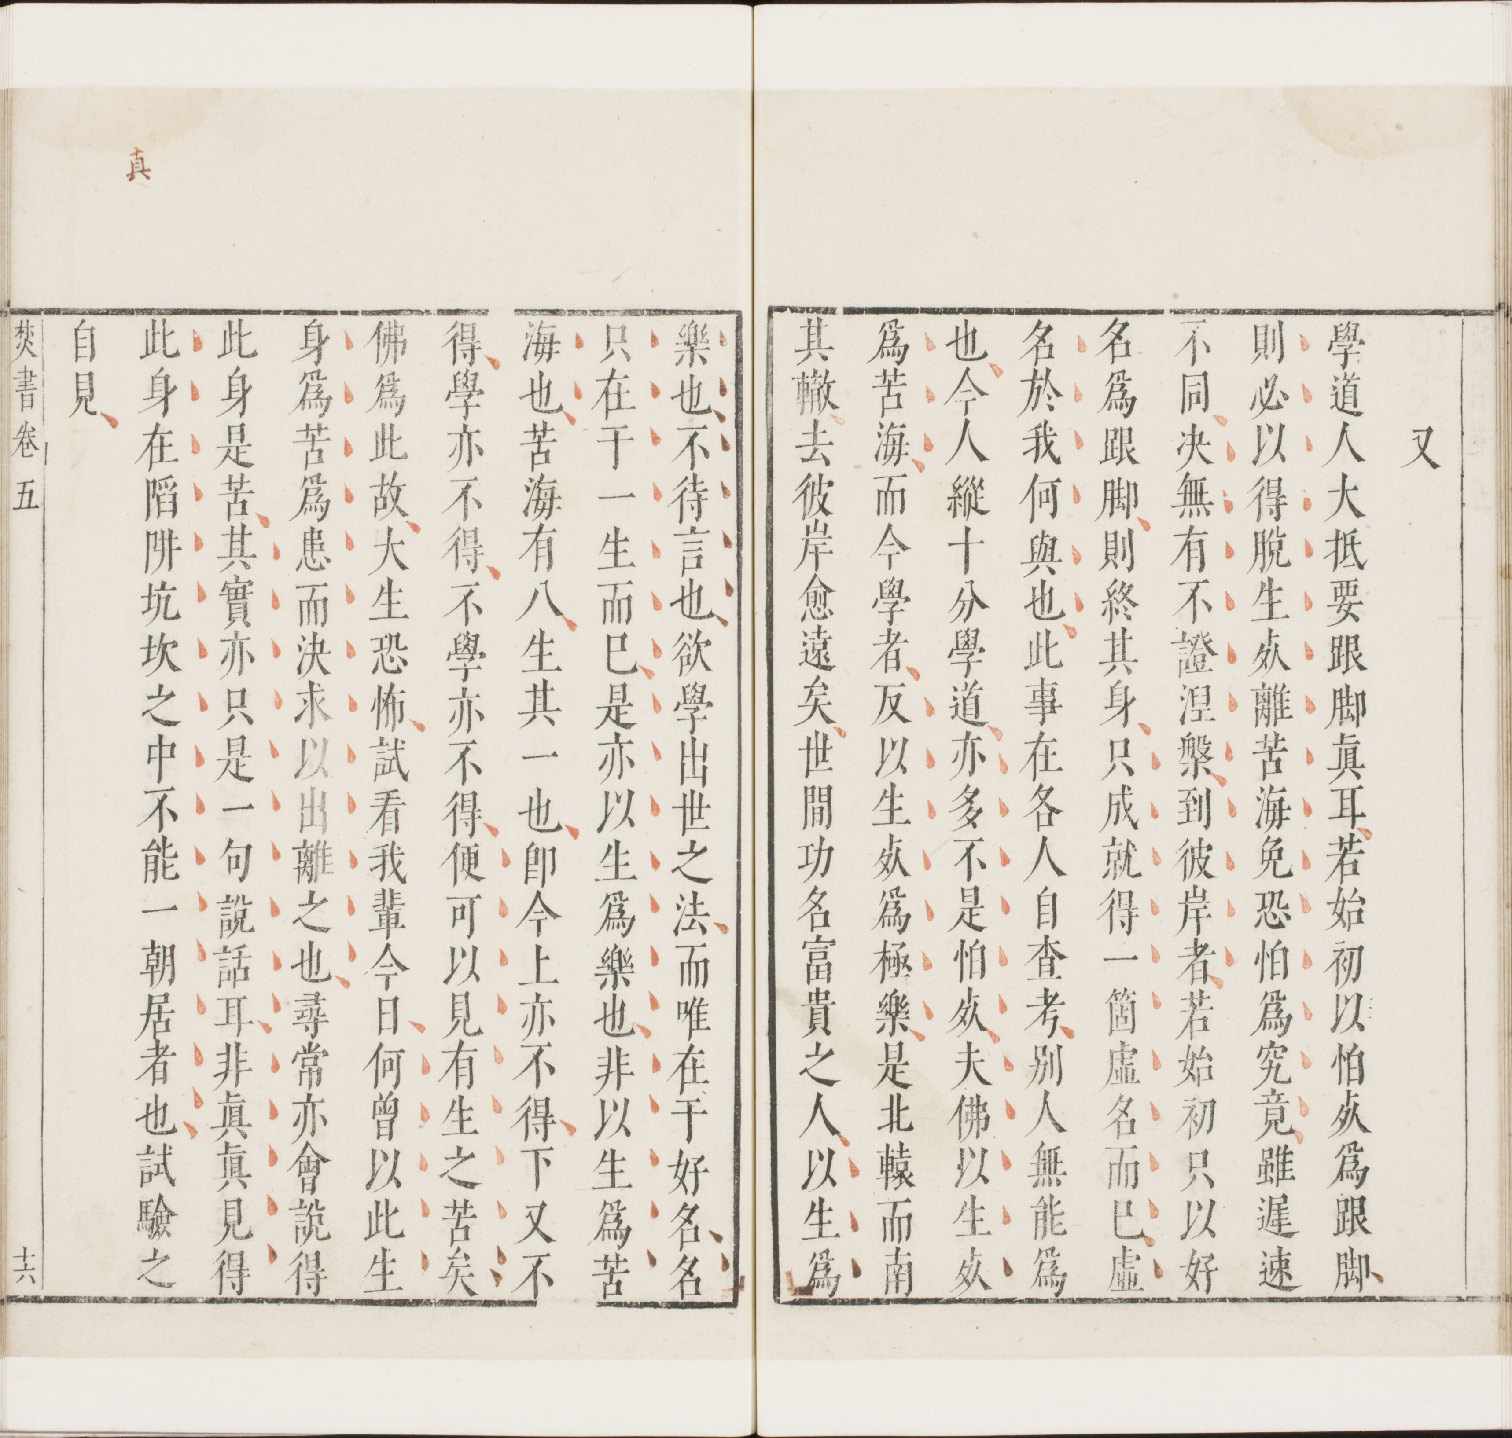 又
學道人大抵要跟脚眞耳若始初以怕死爲跟脚
則必以得脫生死離苦海免恐怕爲究竟雖遲速
不同决無有不證涅槃到彼岸者若始初只以好
名爲跟脚則終其身只成就得一箇虛名而已虛
名於我何與也此事在各人自查考别人無能爲
也今人縱十分學道亦多不是怕死夫佛以生死
爲苦海而今學者反以生死爲極樂是北轅而南
其轍去彼岸愈遠矣世間功名富貴之人以生爲
樂也不待言也欲學出世之法而唯在于好名名
只在于一生而已是亦以生爲樂也非以生爲苦
海也苦海有八生其一也卽今上亦不得下又不
得學亦不得不學亦不得便可以見有生之苦矣
佛爲此故大生恐怖試看我輩今日何曾以此生
身爲苦爲患而決求以出離之也尋常亦會說得
此身是苦其實亦只是一句說話耳非眞眞見得
此身在陷阱坑坎之中不能一朝居者也試驗之
自見
焚書卷五
十六
真